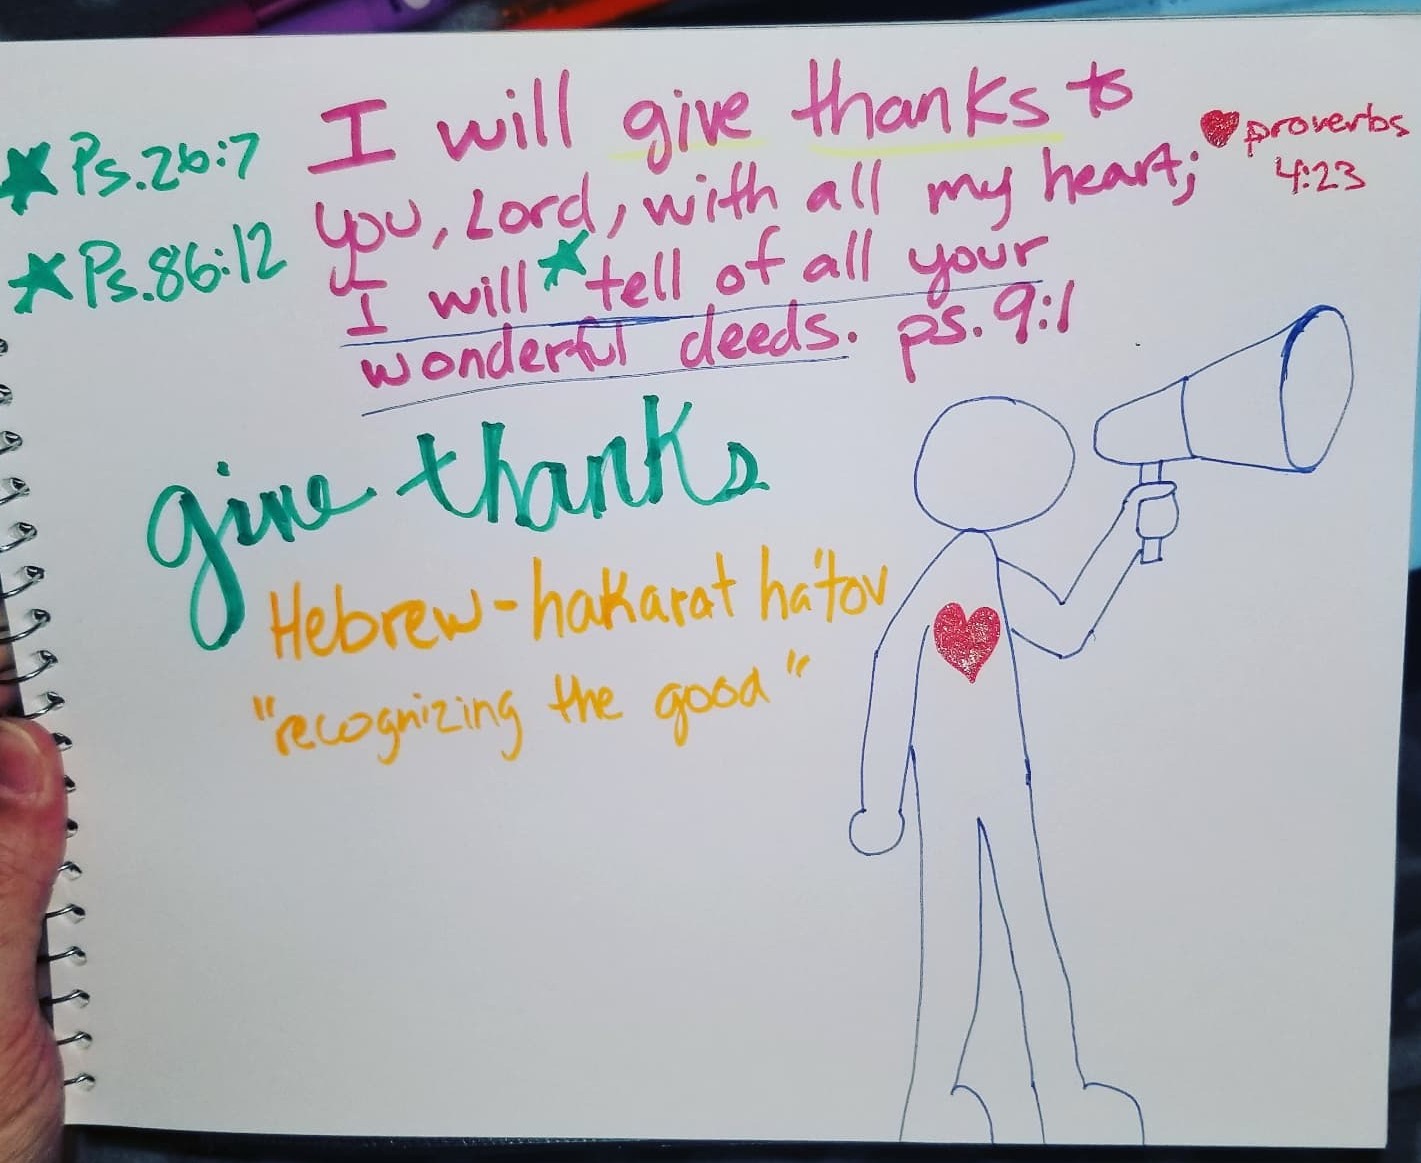 ★Ps.26:7
★Ps.86:12
I will give thanks to
you, Lord, with all my heart;
I will ★tell of all your
wonderful deeds. ps. 9:1
♥proverbs
4:23
give thanks
Hebrew-hakarat ha'tov
"recognizing the good"